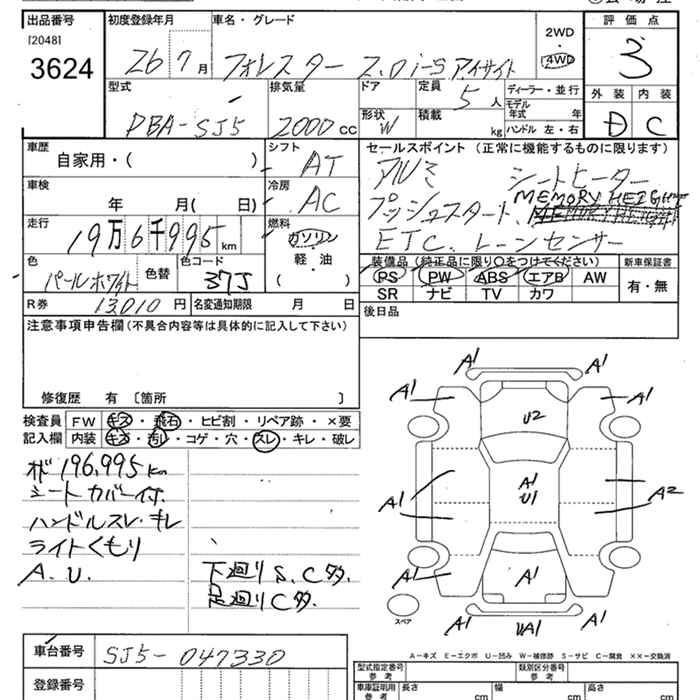 出品番号 初度登録年月 車名・グレード 2WD 評価点
[2048]
3624 26 7 月 フォレスター 2.0i-S アイサイト 4WD 3
型式 排気量 ドア 定員 ディーラー・並行 外装 内装
5 人 モデル年式 年
DBA-SJ5 2000 CC 形状 W 積載 kg ハンドル 左・右 D C
車歴 シフト セールスポイント (正常に機能するものに限ります)
自家用・( ) AT アルミ シートヒーター
車検 冷房 プッシュスタート、 MEMORY HEIGHT
年 月( 日) AC
走行 燃料 ETC. レーンセンサー
19万6千995 km ガソリン
色 色替 色コード 軽・油 装備品 (純正品に限り○をつけてください) 新車保証書
パールホワイト 37J ( ) PS PW ABS エアB AW 有・無
SR ナビ TV カワ
R券 13,010 円 名変通知期限 月 日 後日品
注意事項申告欄 (不具合内容等は具体的に記入して下さい)
修復歴 有 〔箇所 〕
検査員 FW キズ・飛石・ヒビ割・リペア跡・×要
記入欄 内装 キズ・汚レ・コゲ・穴・スレ・キレ・破レ
196,995 km
シートカバー付.
ハンドルスレ・キレ
ライトくもり
A.U. 下廻り S.C多.
足廻り C多.
A1 A1
A1 A1
U2
A1 A1 U1 A2
A1 A1 A1
A1 UA1 A1
スペア
A-キズ E-エクボ U-凹み W-補修跡 S-サビ C-腐食 ××-交換済
車台番号 SJ5-047330
型式指定番号 参考 類別区分番号 参考
登録番号 車庫証明用 参考 長さ cm 幅 cm 高さ cm